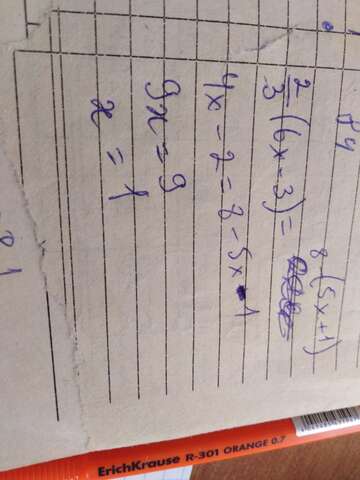 84
2/3 (6x - 3) = 8 - (5x + 1)
4x - 2 = 8 - 5x - 1
9x = 9
x = 1
ErichKrause R-301 ORANGE 0.7